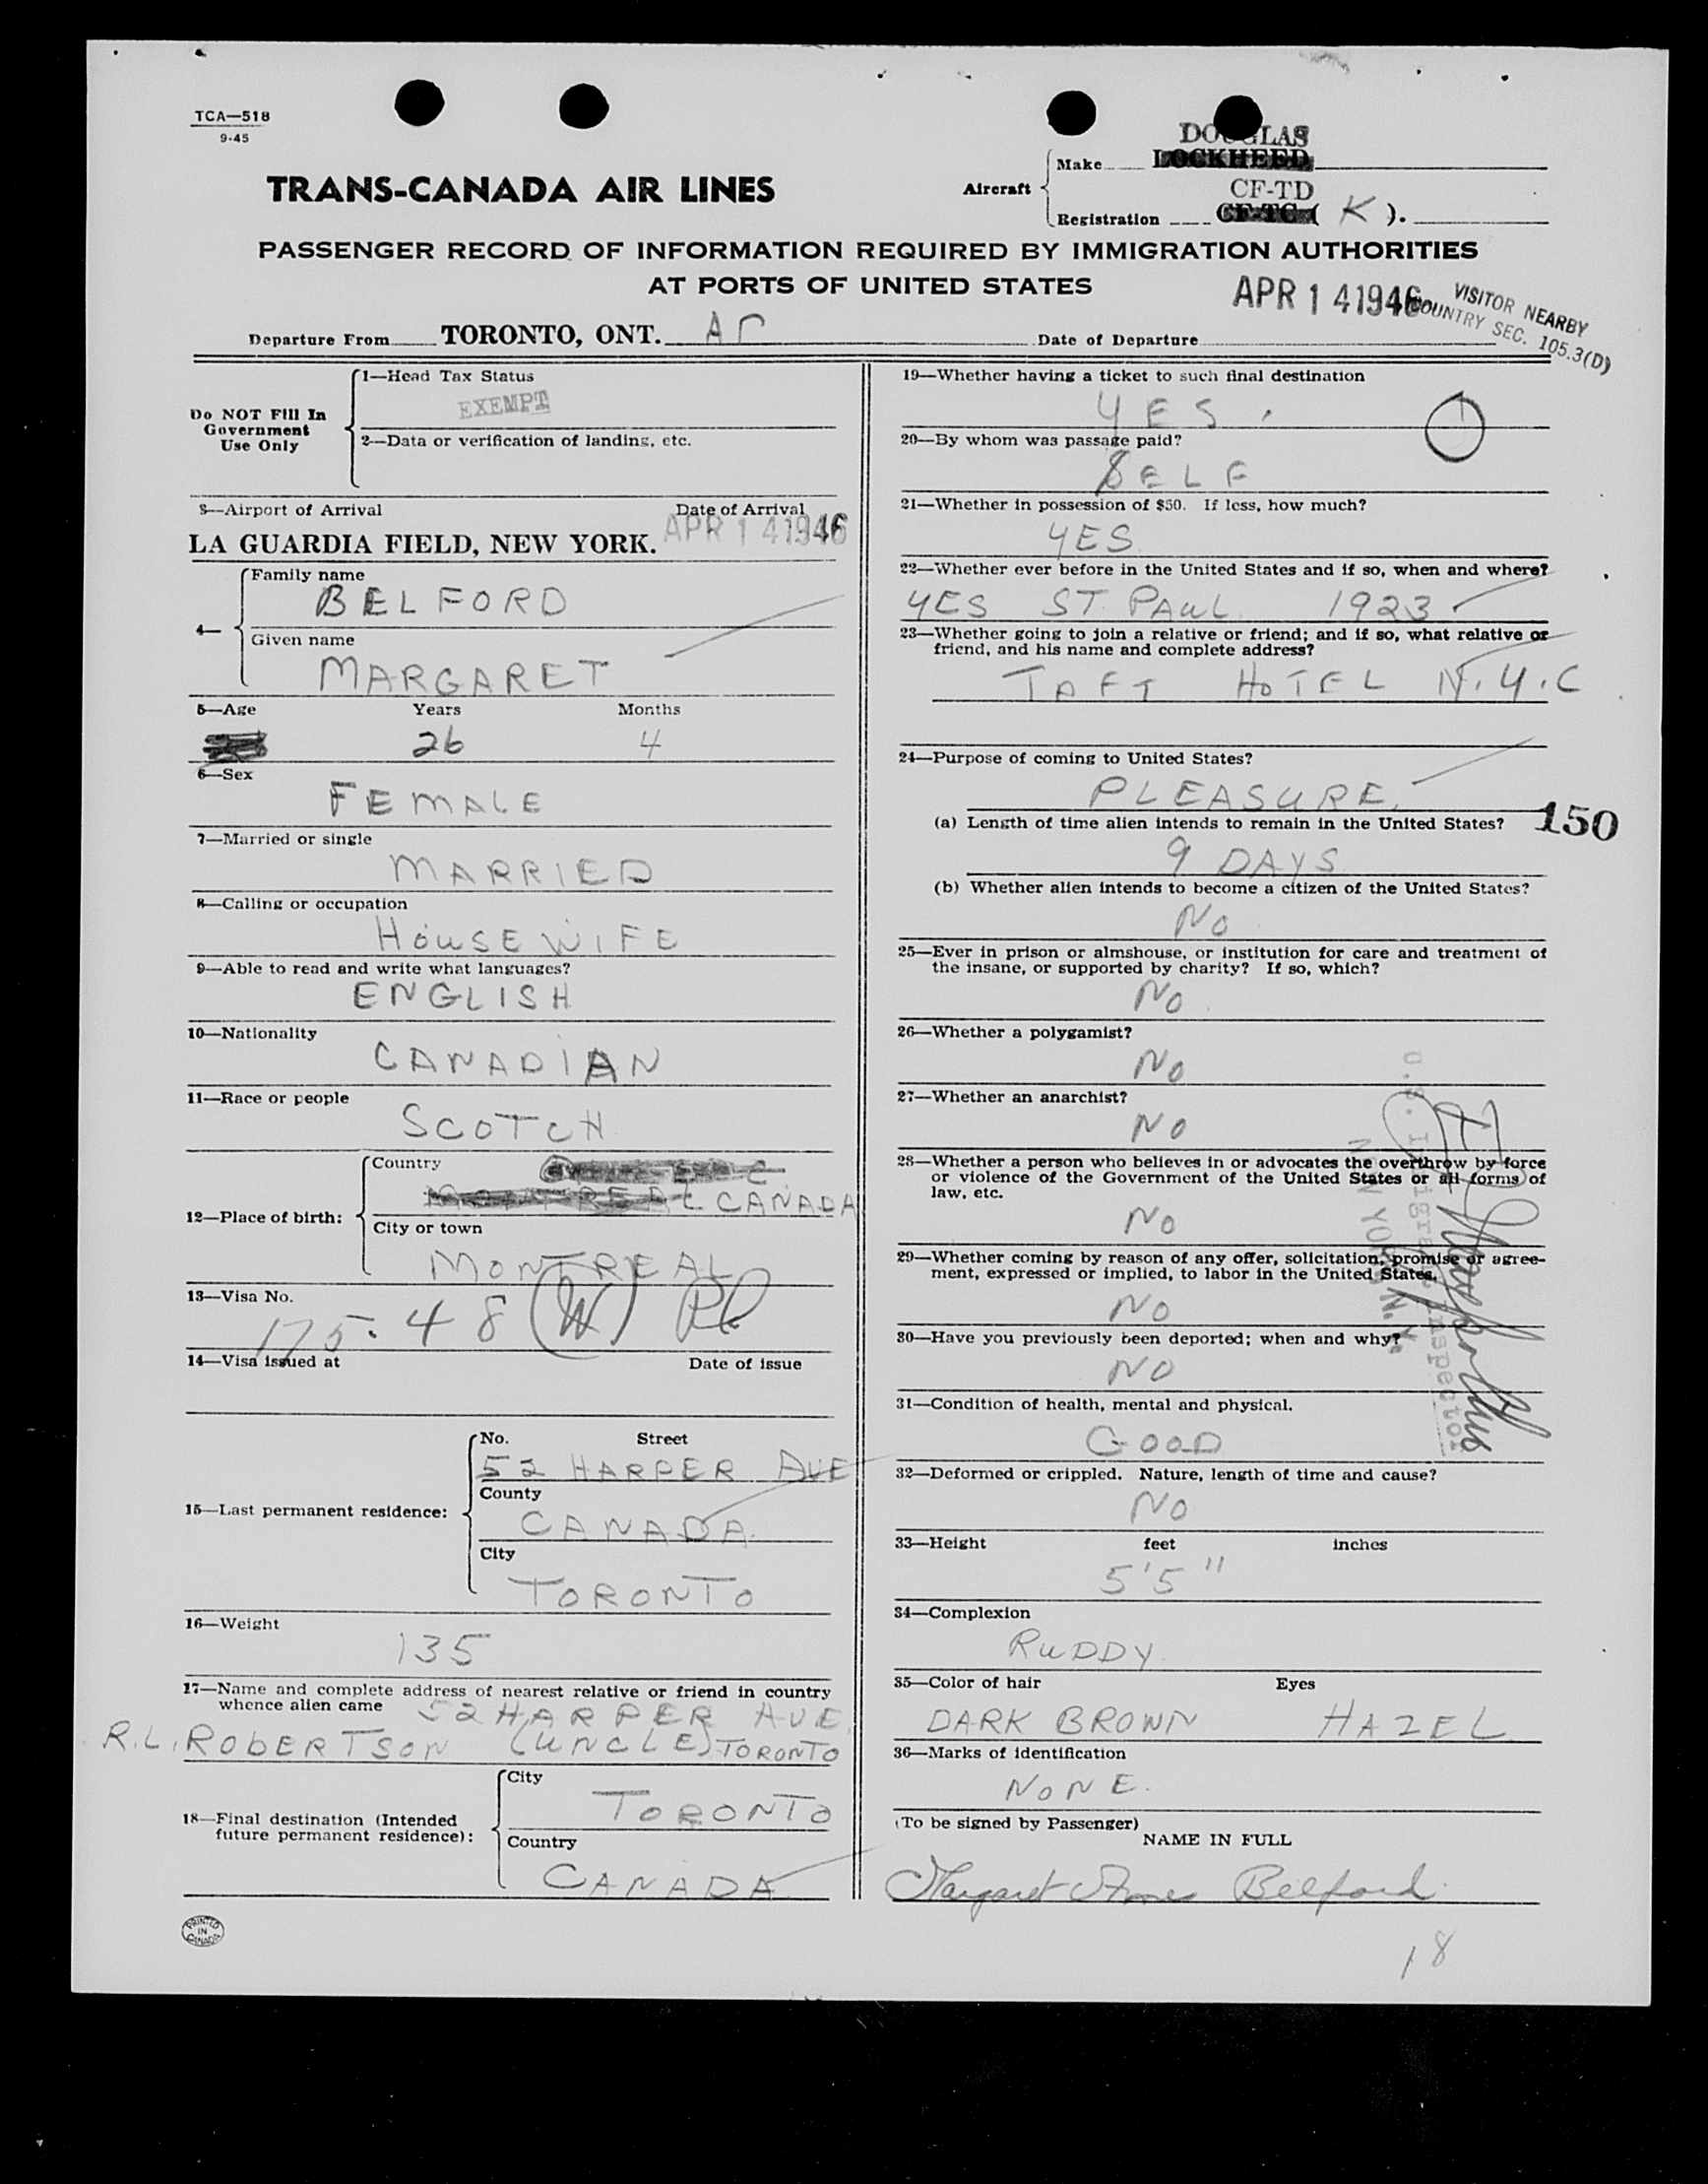 TCA—518
9-45
DOUGLAS
Aircraft Make LOCKHEED
TRANS-CANADA AIR LINES
CF-TD
Registration CF-TC ( K ).
PASSENGER RECORD OF INFORMATION REQUIRED BY IMMIGRATION AUTHORITIES
AT PORTS OF UNITED STATES
APR 14 1946
VISITOR NEARBY
COUNTRY SEC. 105.3(D)
Departure From TORONTO, ONT. Date of Departure
Do NOT Fill In
Government
Use Only
1—Head Tax Status
EXEMPT
2—Data or verification of landing, etc.
3—Airport of Arrival Date of Arrival
LA GUARDIA FIELD, NEW YORK. APR 14 1946
4—
Family name
BELFORD
Given name
MARGARET
5—Age Years Months
26 4
6—Sex
FEMALE
7—Married or single
MARRIED
8—Calling or occupation
HOUSEWIFE
9—Able to read and write what languages?
ENGLISH
10—Nationality
CANADIAN
11—Race or people
SCOTCH
12—Place of birth:
Country
MONTREAL CANADA
City or town
MONTREAL
13—Visa No.
175.48 (W)
14—Visa issued at Date of issue
15—Last permanent residence:
No. Street
52 HARPER AVE
County
CANADA.
City
TORONTO
16—Weight
135
17—Name and complete address of nearest relative or friend in country
whence alien came 52 HARPER AVE
R.L. ROBERTSON (UNCLE) TORONTO
18—Final destination (Intended
future permanent residence):
City
TORONTO
Country
CANADA
PRINTED
IN
CANADA
19—Whether having a ticket to such final destination
YES.
1
20—By whom was passage paid?
SELF
21—Whether in possession of $50. If less, how much?
YES
22—Whether ever before in the United States and if so, when and where?
YES ST. PAUL 1923
23—Whether going to join a relative or friend; and if so, what relative or
friend, and his name and complete address?
TAFT HOTEL N.Y.C
24—Purpose of coming to United States?
PLEASURE.
(a) Length of time alien intends to remain in the United States?
150
9 DAYS
(b) Whether alien intends to become a citizen of the United States?
NO
25—Ever in prison or almshouse, or institution for care and treatment of
the insane, or supported by charity? If so, which?
NO
26—Whether a polygamist?
NO
27—Whether an anarchist?
NO
28—Whether a person who believes in or advocates the overthrow by force
or violence of the Government of the United States or all forms of
law, etc.
NO
29—Whether coming by reason of any offer, solicitation, promise or agree-
ment, expressed or implied, to labor in the United States.
NO
30—Have you previously been deported; when and why?
NO
U.S. Immigrant Inspector
NEW YORK, N.Y.
31—Condition of health, mental and physical.
GOOD
32—Deformed or crippled. Nature, length of time and cause?
NO
33—Height feet inches
5'5"
34—Complexion
RUDDY
35—Color of hair Eyes
DARK BROWN HAZEL
36—Marks of identification
NONE.
(To be signed by Passenger)
NAME IN FULL
Margaret Belford
18